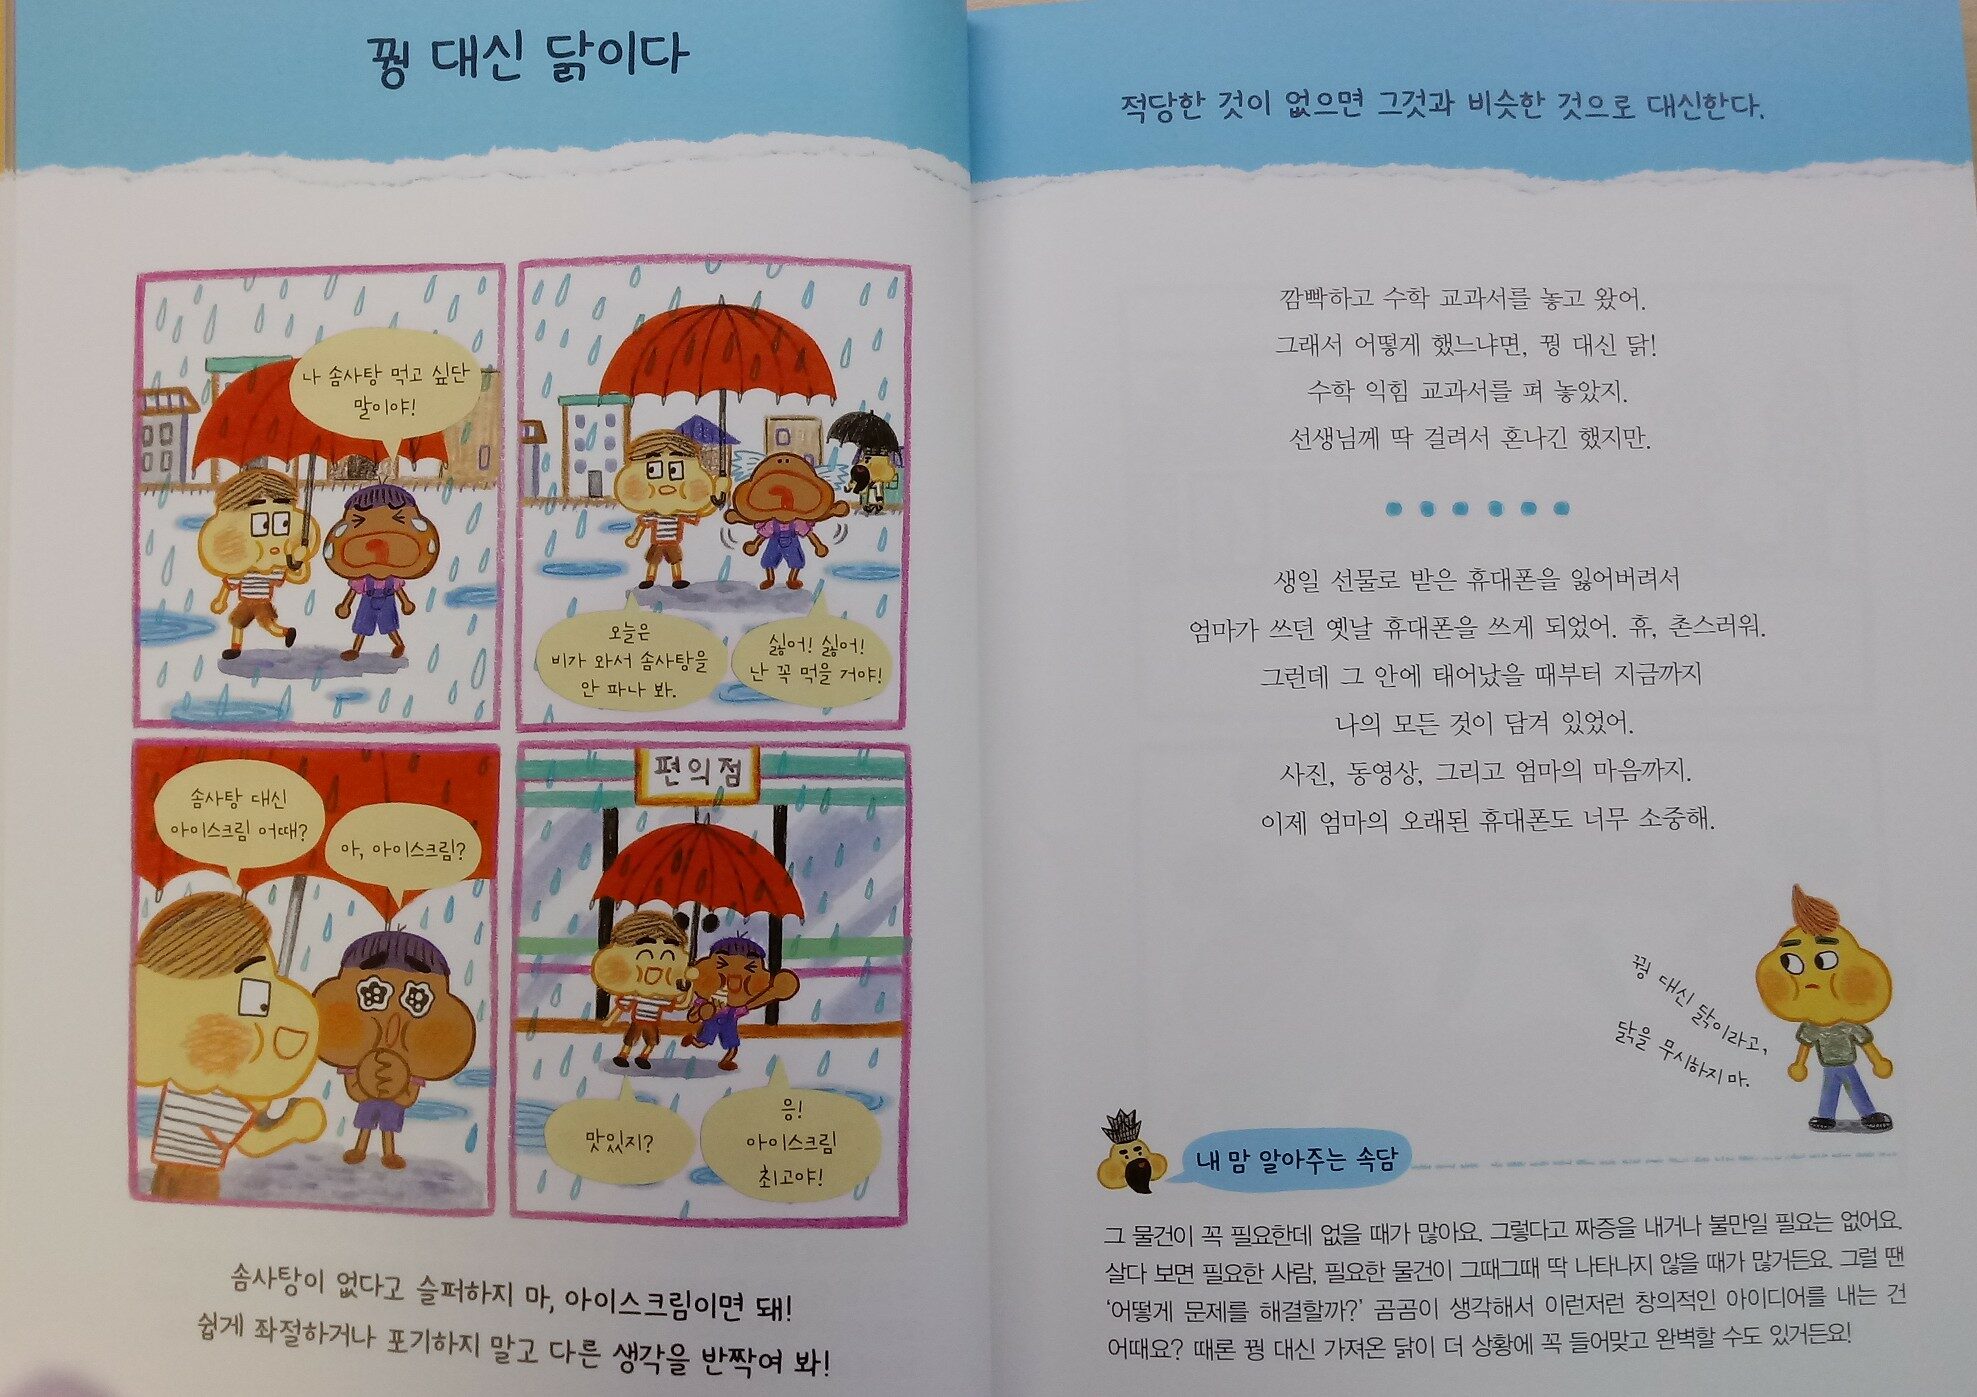 꿩 대신 닭이다
나 솜사탕 먹고 싶단
말이야!
오늘은
비가 와서 솜사탕을
안 파나 봐.
싫어! 싫어!
난 꼭 먹을 거야!
솜사탕 대신
아이스크림 어때?
아, 아이스크림?
편의점
맛있지?
응!
아이스크림
최고야!
솜사탕이 없다고 슬퍼하지 마, 아이스크림이면 돼!
쉽게 좌절하거나 포기하지 말고 다른 생각을 반짝여 봐!
적당한 것이 없으면 그것과 비슷한 것으로 대신한다.
깜빡하고 수학 교과서를 놓고 왔어.
그래서 어떻게 했느냐면, 꿩 대신 닭!
수학 익힘 교과서를 펴 놓았지.
선생님께 딱 걸려서 혼나긴 했지만.
생일 선물로 받은 휴대폰을 잃어버려서
엄마가 쓰던 옛날 휴대폰을 쓰게 되었어. 휴, 촌스러워.
그런데 그 안에 태어났을 때부터 지금까지
나의 모든 것이 담겨 있었어.
사진, 동영상, 그리고 엄마의 마음까지.
이제 엄마의 오래된 휴대폰도 너무 소중해.
꿩 대신 닭이라고,
닭을 무시하지 마.
내 맘 알아주는 속담
그 물건이 꼭 필요한데 없을 때가 많아요. 그렇다고 짜증을 내거나 불만일 필요는 없어요.
살다 보면 필요한 사람, 필요한 물건이 그때그때 딱 나타나지 않을 때가 많거든요. 그럴 땐
‘어떻게 문제를 해결할까?’ 곰곰이 생각해서 이런저런 창의적인 아이디어를 내는 건
어때요? 때론 꿩 대신 가져온 닭이 더 상황에 꼭 들어맞고 완벽할 수도 있거든요!